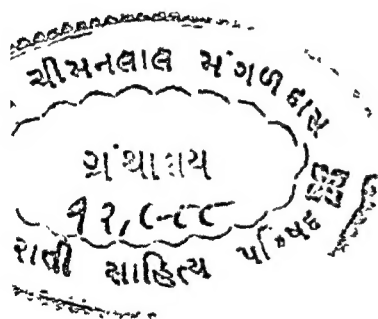 ચીમનલાલ મંગળદાસ
ગ્રંથાલય
૧૨,૯૮૮
રાતી સાહિત્ય પરિષદ